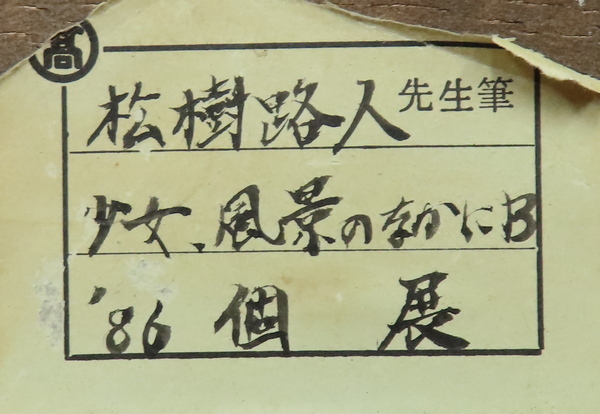 髙
松樹路人先生筆
少女、風景のなかにB
'86 個 展